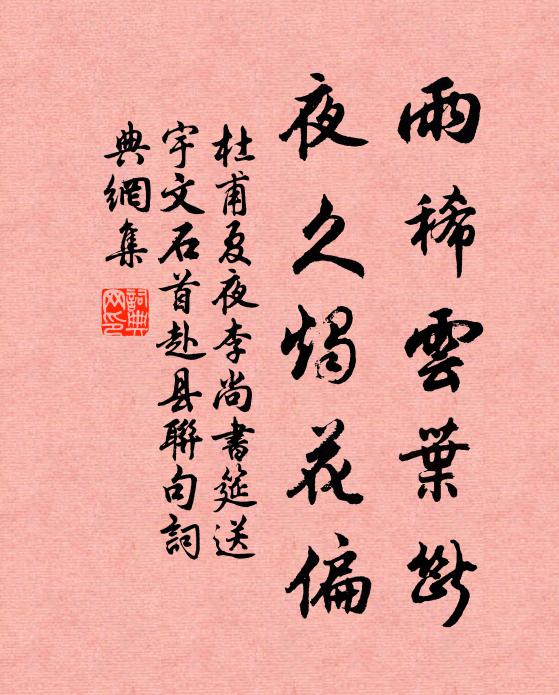 雨稀雲葉斷
夜久燭花偏
杜甫夏夜李尚書筵送
宇文石首赴县聯句詞
典網集
詞典
网印